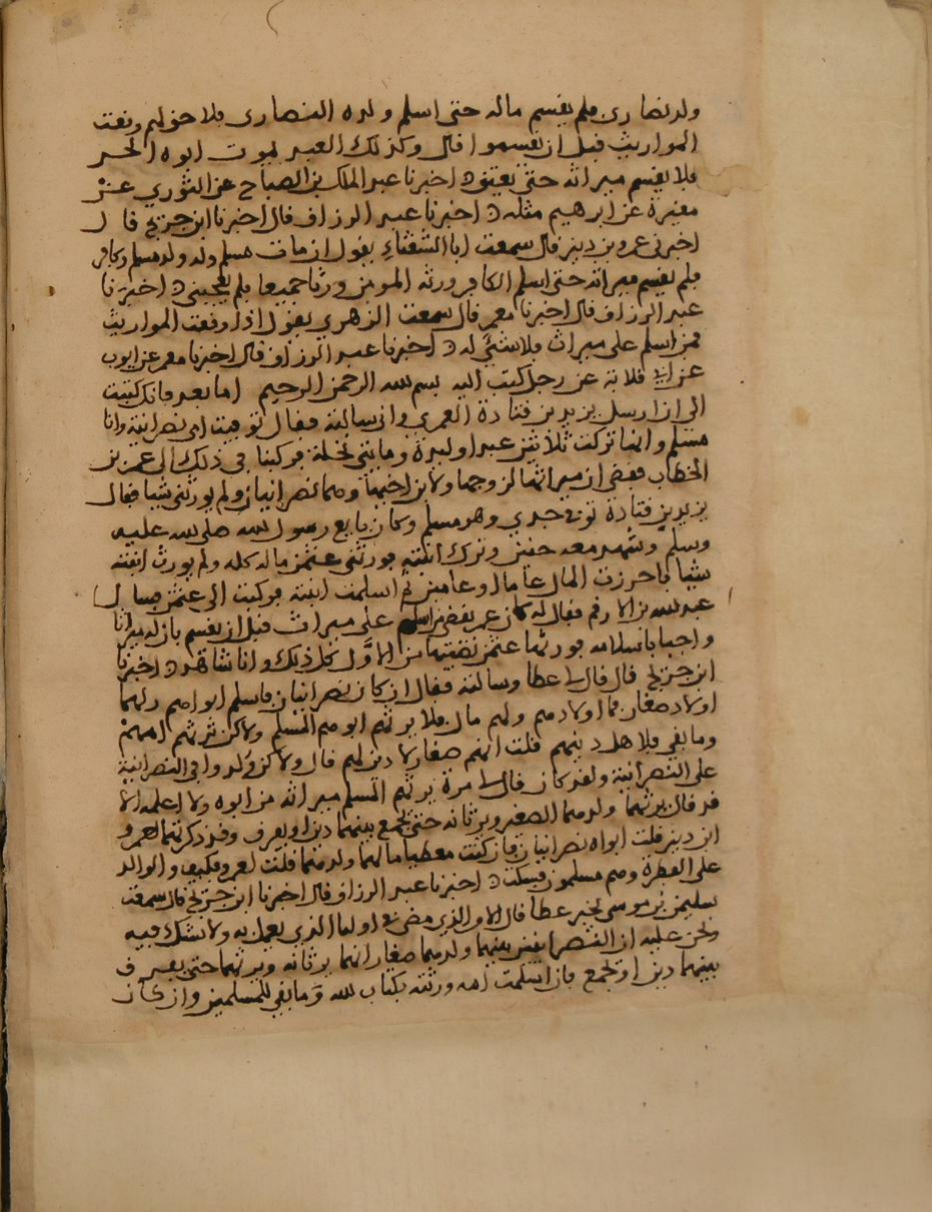 ولد نصارى فلم يقسم ماله حتى اسلم ولده النصارى فلا حق لهم وقعت
المواريث قبل ان يقسموا قال وكذلك العبد يموت ابوه الحر
فلا يقسم ميراثه حتى يعتق اخبرنا عبد الملك بن الصباح عن الثوري عن
مغيرة عن ابرهيم مثله اخبرنا عبد الرزاق قال اخبرنا ابن جريج قال
اخبرني عمرو بن دينر قال سمعت ابا الشعثاء يقول ان مات مسلم وله ولد مسلم وكافر
فلم يقسم ميراثه حتى اسلم الكافر ورثه المومن ورثا جميعا فلم يعجبني اخبرنا
عبد الرزاق قال اخبرنا معمر قال سمعت الزهري يقول اذا وقعت المواريث
فمن اسلم على ميراث فلا شيء له اخبرنا عبد الرزاق قال اخبرنا معمر عن ايوب
عن ابي قلابة عن رجل كتب اليه بسم الله الرحمن الرحيم اما بعد فانك كتبت
الي ان ارسل يزيد بن قتادة العمري واني سالته فقال توفيت امي نصرانية وانا
مسلم وانها تركت ثلاثين عبدا ووليدة ومايتي نخلة فركبنا في ذلك الى عمر بن
الخطاب فقضى ان ميراثها لزوجها ولابن اخيها وهما نصرانيان ولم يورثني شيا فقال
يزيد بن قتادة توفي جدي وهو مسلم وكان بايع رسول الله صلى الله عليه
وسلم وشهد معه حنين وترك ابنته فورثني عثمن ماله كله ولم يورث ابنته
شيا فاحرزت المال عاما او عامين ثم اسلمت ابنته فركبت الى عثمن فسال
عبد الله بن الارقم فقال له كان عمر يقضي من اسلم على ميراث قبل ان يقسم بان له ميراثا
واجبا باسلامه فورثها عثمن نصيبها من الاول كل ذلك وانا شاهد اخبرنا
ابن جريج قال قال لي عطا وسالته فقال ان كان نصرانيان فاسلم ابواهم ولهما
اولاد صغار فمات اولادهم ولهم مال فلا يرثهم ابوهم المسلم ولاكن ترثهم امهم
وما بقي فلاهل دينهم قلت انهم صغار لا دين لهم قال ولاكن ولدوا في النصرانية
على النصرانية ولقد كان قال لي مرة يرثهم المسلم ميراثه من ابوه ولا اعلمه الا
قد قال يرثهما ولدهما الصغير ويرثانه حتى يجمع بينهما دين او يفرق وقد ذكرتهما لعمرو
ابن دينر قلت ابواه نصرانيان قال كنت معطيا مالهما ولدهما قلت لعمرو فكيف والوالد
على الفطرة وهم مسلمون فسكت اخبرنا عبد الرزاق قال اخبرنا ابن جريج قال سمعت
سليمن بن موسى يخبر عطا قال الامر الذي مضى في اولنا الذي يعمل به ولا نشك فيه
ونحن عليه ان النصرانيين بينهما ولدهما صغار انهما يرثانه ويرثهما حتى يفرق
بينهما دين او يجمع فان اسلمت امه ورثته بكتاب الله وما بقي للمسلمين وان كان